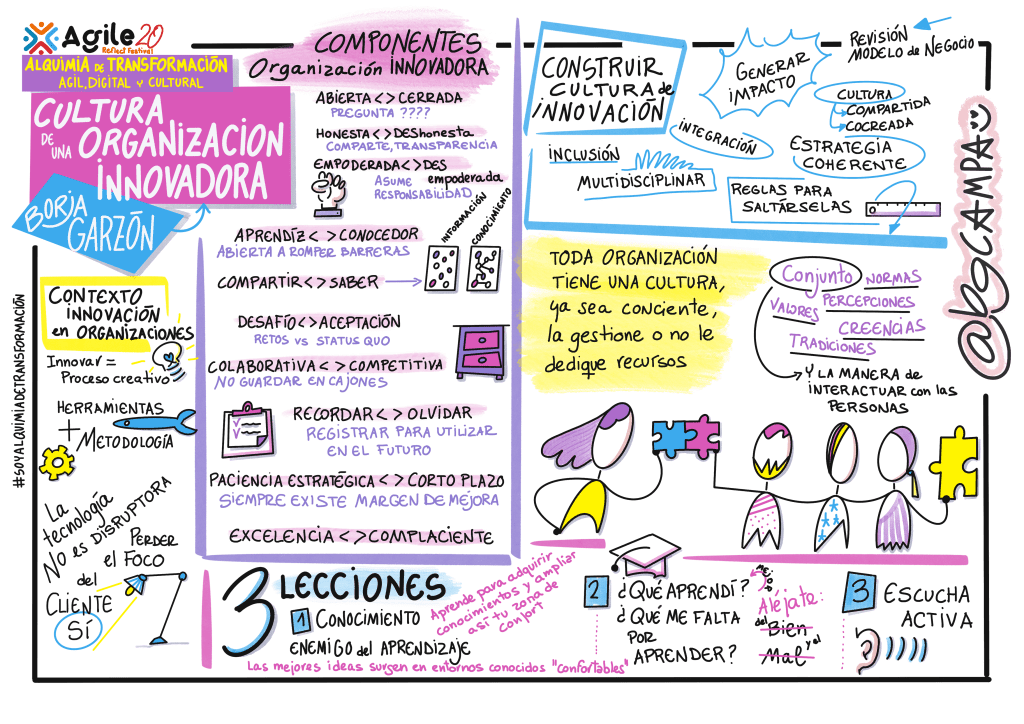 Agile 20
Reflect Festival
ALQUIMIA DE TRANSFORMACIÓN
AGIL, DIGITAL Y CULTURAL
CULTURA
DE UNA ORGANIZACION
INNOVADORA
BORJA
GARZÓN
#SOYALQUIMIADETRANSFORMACIÓN
CONTEXTO
INNOVACIÓN
en ORGANIZACIONES
Innovar =
Proceso creativo
HERRAMIENTAS
+
METODOLOGÍA
La
tecnología
NO es DISRUPTORA
PERDER
el FOCO
del
CLIENTE
SÍ
COMPONENTES
Organización INNOVADORA
ABIERTA <> CERRADA
PREGUNTA ????
HONESTA <> DEShonesta
COMPARTE, TRANSPARENCIA
EMPODERADA <> DES
empoderada
ASUME
RESPONSABILIDAD
INFORMACIÓN
CONOCIMIENTO
APRENDÍZ <> CONOCEDOR
ABIERTA A ROMPER BARRERAS
COMPARTIR <> SABER
DESAFÍO <> ACEPTACIÓN
RETOS vs STATUS QUO
COLABORATIVA <> COMPETITIVA
NO GUARDAR EN CAJONES
RECORDAR <> OLVIDAR
REGISTRAR PARA UTILIZAR
EN EL FUTURO
PACIENCIA ESTRATÉGICA <> CORTO PLAZO
SIEMPRE EXISTE MARGEN DE MEJORA
EXCELENCIA <> COMPLACIENTE
CONSTRUIR
CULTURA de
INNOVACIÓN
GENERAR
IMPACTO
REVISIÓN
MODELO de NEGOCIO
CULTURA
COMPARTIDA
COCREADA
INTEGRACIÓN
INCLUSIÓN
MULTIDISCIPLINAR
ESTRATEGIA
COHERENTE
REGLAS PARA
SALTÁRSELAS
@bgCAMPA
TODA ORGANIZACIÓN
TIENE UNA CULTURA,
ya sea conciente,
la gestione o no le
dedique recursos
Conjunto NORMAS
VALORES PERCEPCIONES
CREENCIAS
TRADICIONES
Y LA MANERA de
INTERACTUAR con las
PERSONAS
3 LECCIONES
1 CONOCIMIENTO
ENEMIGO del APRENDIZAJE
Las mejores ideas surgen en entornos conocidos "confortables"
Aprende para adquirir
conocimientos y ampliar
así tu zona de
confort
2 ¿QUÉ APRENDÍ?
¿QUÉ ME FALTA
POR
APRENDER?
MEJOR
Aléjate:
del Bien
y el
Mal
3 ESCUCHA
ACTIVA